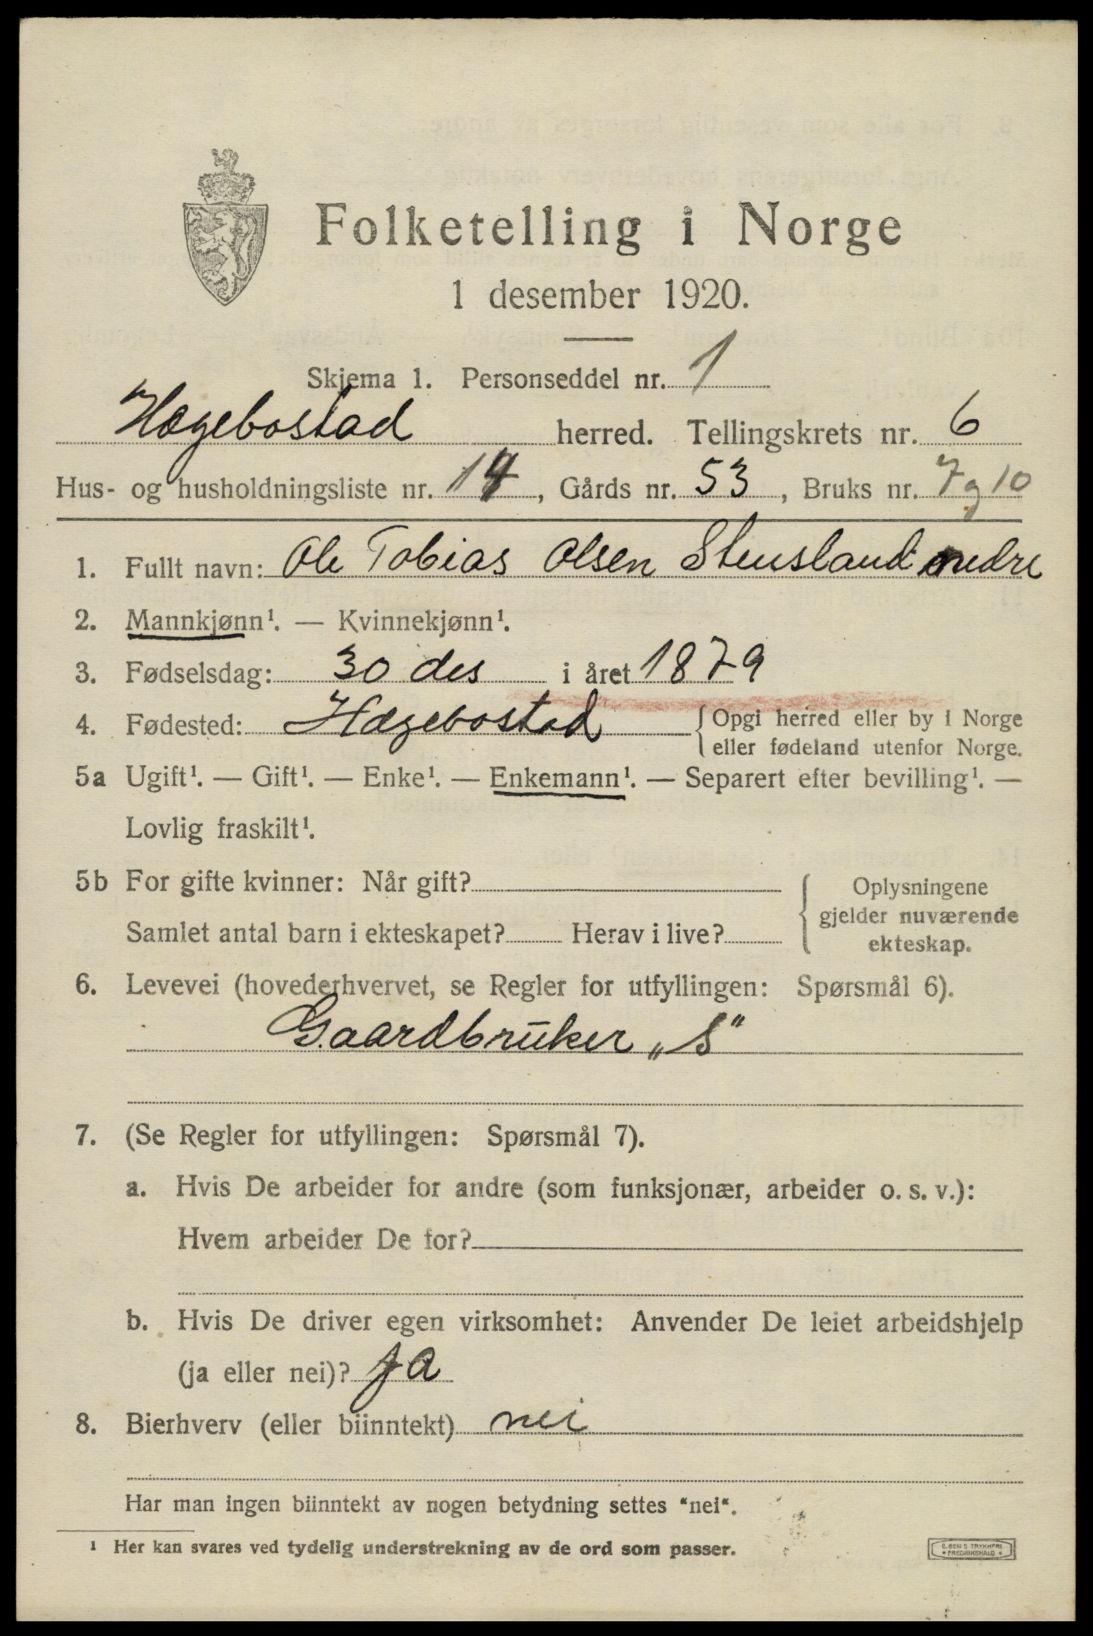 Folketelling i Norge
1 desember 1920.
Skjema 1. Personseddel nr. 1
Hægebostad herred. Tellingskrets nr. 6
Hus- og husholdningsliste nr. 14, Gårds nr. 53, Bruks nr. 7 og 10
1. Fullt navn: Ole Tobias Olsen Stensland nedre
2. Mannkjønn¹. — Kvinnekjønn¹.
3. Fødselsdag: 30 des i året 1879
4. Fødested: Hægebostad {Opgi herred eller by i Norge
eller fødeland utenfor Norge.
5a Ugift¹. — Gift¹. — Enke¹. — Enkemann¹. — Separert efter bevilling¹. —
Lovlig fraskilt¹.
5b For gifte kvinner: Når gift?
Samlet antal barn i ekteskapet? Herav i live?
{Oplysningene
gjelder nuværende
ekteskap.
6. Levevei (hovederhvervet, se Regler for utfyllingen: Spørsmål 6).
Gaardbruker „S“
7. (Se Regler for utfyllingen: Spørsmål 7).
a. Hvis De arbeider for andre (som funksjonær, arbeider o. s. v.):
Hvem arbeider De for?
b. Hvis De driver egen virksomhet: Anvender De leiet arbeidshjelp
(ja eller nei)? ja
8. Bierhverv (eller biinntekt) nei
Har man ingen biinntekt av nogen betydning settes "nei".
¹ Her kan svares ved tydelig understrekning av de ord som passer.